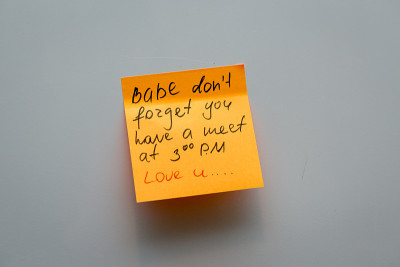 Babe don't
forget you
have a meet
at 3⁰⁰ P.M
Love u....